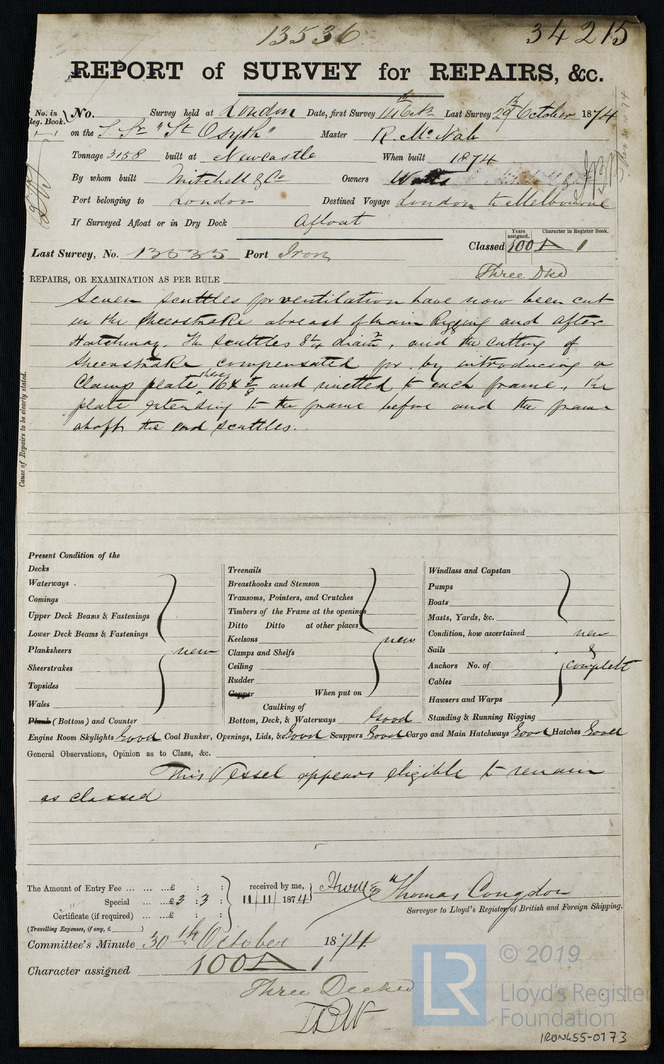 13536
34215
REPORT of SURVEY for REPAIRS, &c.
No. in Reg. Book.
No. Survey held at London Date, first Survey 14th Octr. Last Survey 29th October 1874
on the S. Sr. "St Osyth" Master R. McNab
Tonnage 3158 built at Newcastle When built 1874
By whom built Mitchell & Co Owners Watts
Port belonging to London Destined Voyage London to Melbourne
If Surveyed Afloat or in Dry Dock Afloat
Years assigned. Character in Register Book.
Last Survey, No. 13535 Port Iron Classed 100 A 1
Three Dkd
REPAIRS, OR EXAMINATION AS PER RULE
Seven scuttles for ventilation have now been cut
in the sheerstrake abreast of main Rigging and after
Hatchway. The scuttles 8¼ diamr, and the cutting of
Sheerstrake compensated for by introducing a
Clamp plate there 16 x 5/8 and rivetted to each frame, the
plate extending to the frame before and the frame
abaft the end scuttles.
Cause of Repairs to be clearly stated.
Present Condition of the
Decks
Waterways
Comings
Upper Deck Beams & Fastenings
Lower Deck Beams & Fastenings
Planksheers new
Sheerstrakes
Topsides
Wales
Plank (Bottom) and Counter
Treenails
Breasthooks and Stemson
Transoms, Pointers, and Crutches
Timbers of the Frame at the openings
Ditto Ditto at other places
Keelsons new
Clamps and Shelfs
Ceiling
Rudder
Copper When put on
Caulking of
Bottom, Deck, & Waterways Good
Windlass and Capstan
Pumps
Boats
Masts, Yards, &c.
Condition, how ascertained new
Sails &
Anchors No. of complete
Cables
Hawsers and Warps
Standing & Running Rigging
Engine Room Skylights Good Coal Bunker, Openings, Lids, & Good Scuppers Good Cargo and Main Hatchways Good Hatches Good
General Observations, Opinion as to Class, &c.
This Vessel appears eligible to remain
as classed
The Amount of Entry Fee ... ... ... £ : :
Special ... ... £3 : 3 :
Certificate (if required) ... ... £ : :
(Travelling Expenses, if any, £ )
received by me,
11/11/1874
Thomas Congdon
Surveyor to Lloyd's Register of British and Foreign Shipping.
Committee's Minute 30th October 1874
Character assigned 100 A 1
Three Decked
© 2019
LR
Lloyd's Register
Foundation
IRON455-0173